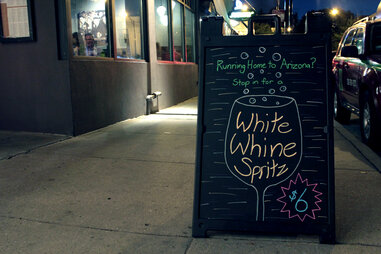 Running Home to Arizona?
Stop in for a
White
Whine
Spritz